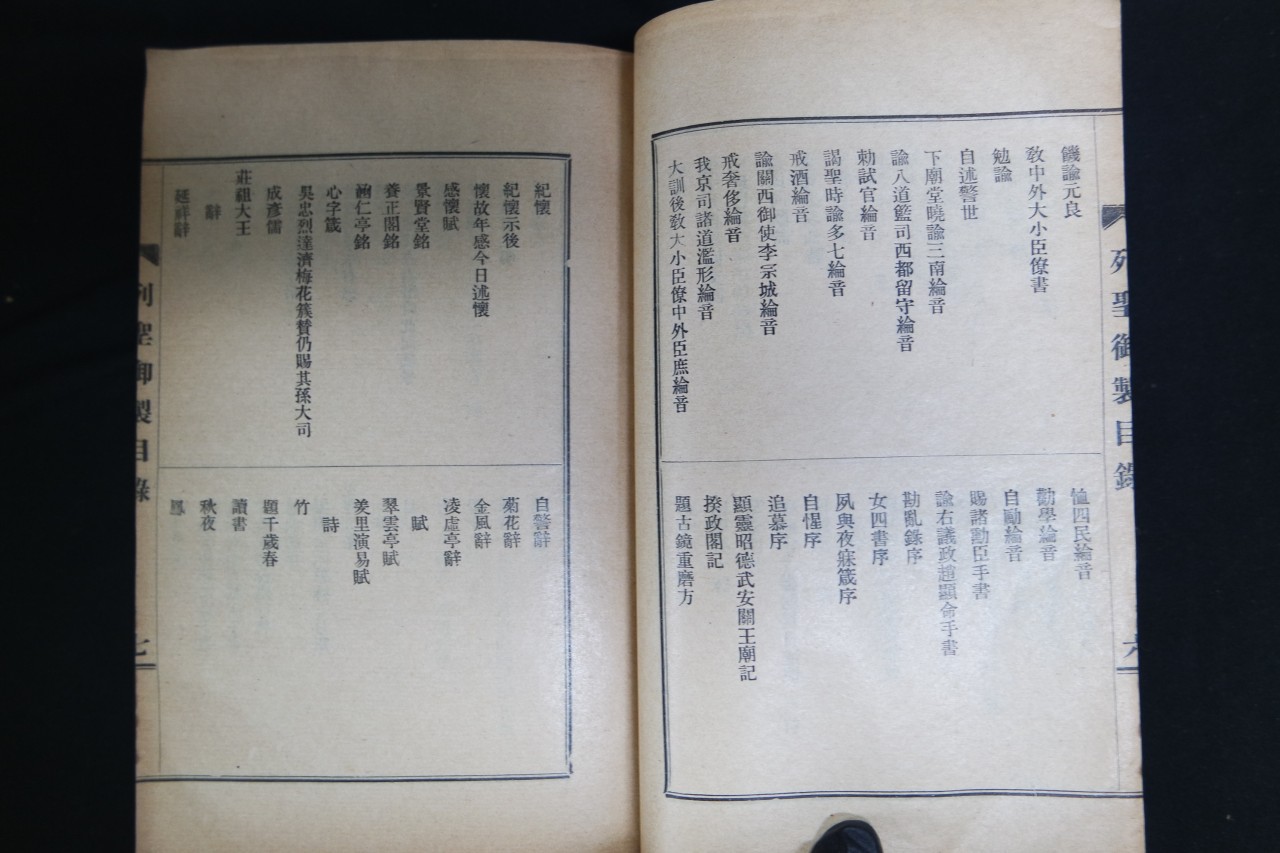 列聖御製目錄
六
饑諭元良
敎中外大小臣僚書
勉諭
自述警世
下廟堂曉諭三南綸音
諭八道籃司西都留守綸音
勅試官綸音
謁聖時諭多七綸音
戒酒綸音
諭關西御使李宗城綸音
戒奢侈綸音
我京司諸道濫形綸音
大訓後敎大小臣僚中外臣庶綸音
恤四民綸音
勸學綸音
自勵綸音
賜諸勳臣手書
諭右議政趙顯命手書
勘亂錄序
女四書序
夙與夜寐箴序
自惺序
追慕序
顯靈昭德武安關王廟記
揆政閣記
題古鏡重磨方
紀懷
紀懷示後
懷故年感今日述懷
感懷賦
景賢堂銘
養正閣銘
心字箴
吳忠烈達濟梅花簇贊仍賜其孫大司
成彥儒
莊祖大王
辭
延祥辭
自警辭
菊花辭
金風辭
凌虛亭辭
賦
琴雲亭賦
羑里演易賦
詩
竹
題千歲春
讀書
秋夜
鳳
列聖御製目錄
七